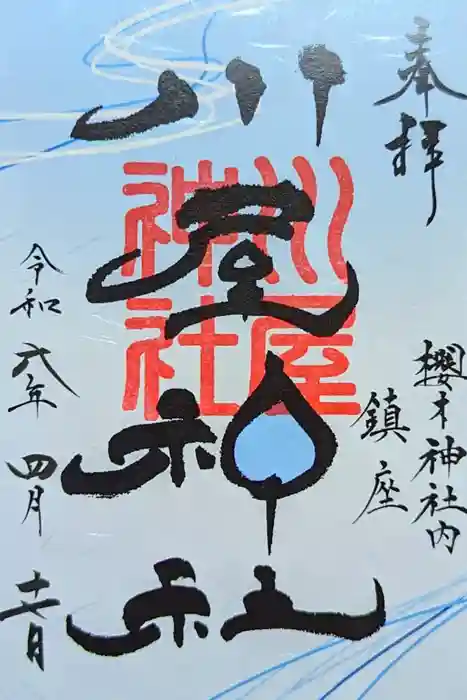 奉拝
櫻木神社内
鎮座
川屋神社
川屋
神社
令和六年四月十七日